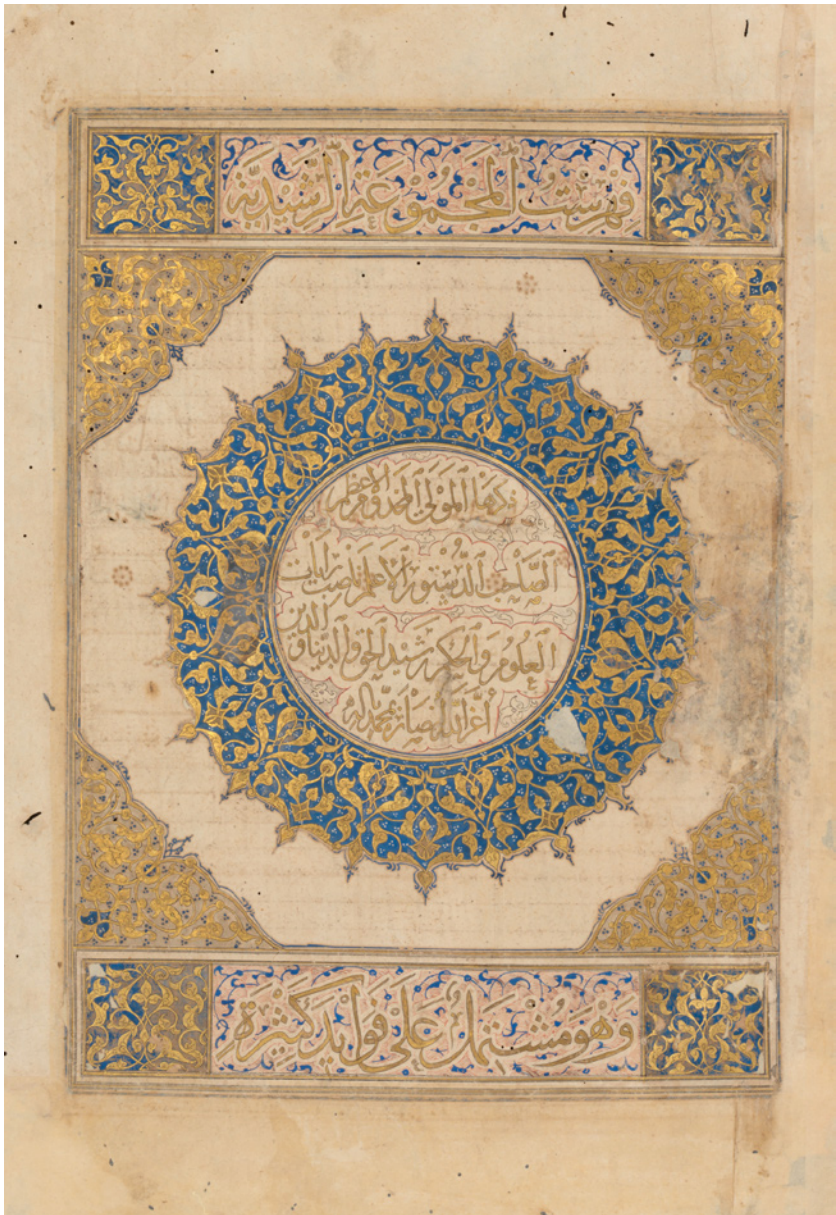 فِهْرِسْتُ ٱلْمَجْمُوْعَةِ ٱلرَّشِيْدِيَّةِ
ٱلْمَوْلَى ٱلْمَخْدُوْمِ ٱلْاَعْظَمِ
ٱلصَّاحِبِ ٱلدُّسْتُوْرِ ٱلْاَعْلَمِ نَاصِبِ رَايَاتِ
ٱلْعُلُوْمِ وَٱلْحِكَمِ رَشِيْدِ ٱلْحَقِّ وَٱلدُّنْيَا وَٱلدِّيْنِ
أَعَزَّ ٱللّٰهُ أَنْصَارَهُ بِمُحَمَّدٍ وَآلِهِ
وَهُوَ مُشْتَمِلٌ عَلَى فَوَايِدَ كَثِيْرَةٍ